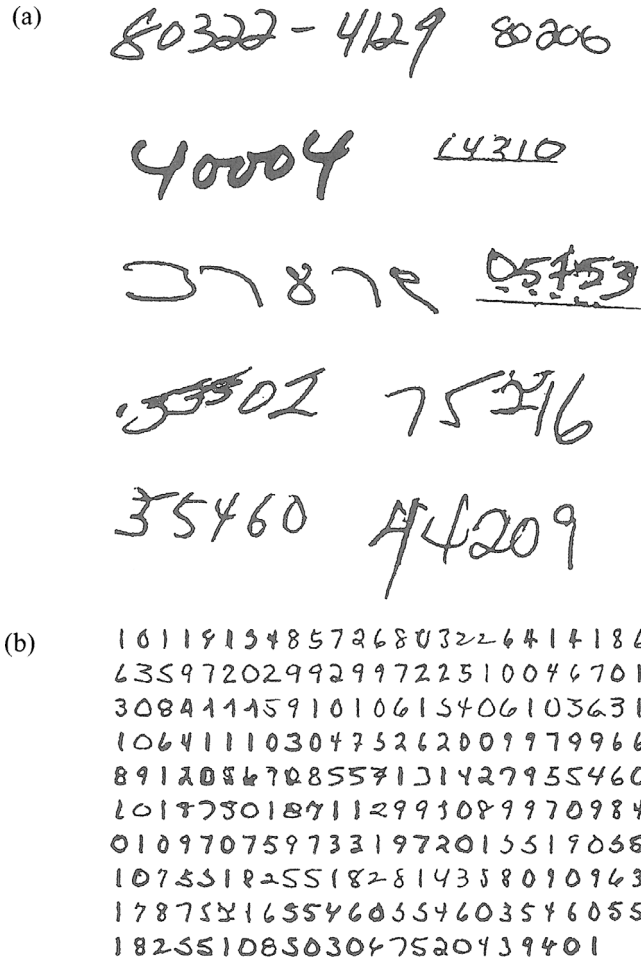 (a) 80322-4129 80206
40004 14310
37878 05753
75216
35460 44209
(b) 1 0 1 1 9 1 3 4 8 5 7 2 6 8 0 3 2 2 6 4 1 4 1 8 6
6 3 5 9 7 2 0 2 9 9 2 9 9 7 2 2 5 1 0 0 4 6 7 0 1
3 0 8 4 1 1 4 5 9 1 0 1 0 6 1 5 4 0 6 1 0 3 6 3 1
1 0 6 4 1 1 1 0 3 0 4 7 5 2 6 2 0 0 9 9 7 9 9 6 6
8 9 1 2 0 5 6 7 0 8 5 5 7 1 3 1 4 2 7 9 5 5 4 6 0
1 0 1 8 7 3 0 1 8 7 1 1 2 9 9 3 0 8 9 9 7 0 9 8 4
0 1 0 9 7 0 7 5 9 7 3 3 1 9 7 2 0 1 5 5 1 9 0 5 6
1 0 7 5 5 1 8 2 5 5 1 8 2 8 1 4 3 5 8 0 9 0 9 6 3
1 7 8 7 5 2 1 6 5 5 4 6 0 5 5 4 6 0 3 5 4 6 0 5 5
1 8 2 5 5 1 0 8 5 0 3 0 4 7 5 2 0 4 3 9 4 0 1